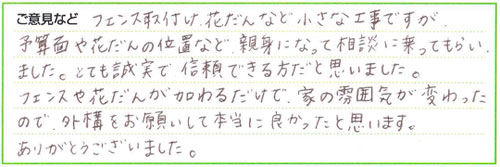 ご意見など
フェンス取付け、花だんなど小さな工事ですが、
予算面や花だんの位置など、親身になって相談に乗ってもらい、
ました。とても誠実で信頼できる方だと思いました。
フェンスや花だんが加わるだけで、家の雰囲気が変わった
ので、外構をお願いして本当に良かったと思います。
ありがとうございました。